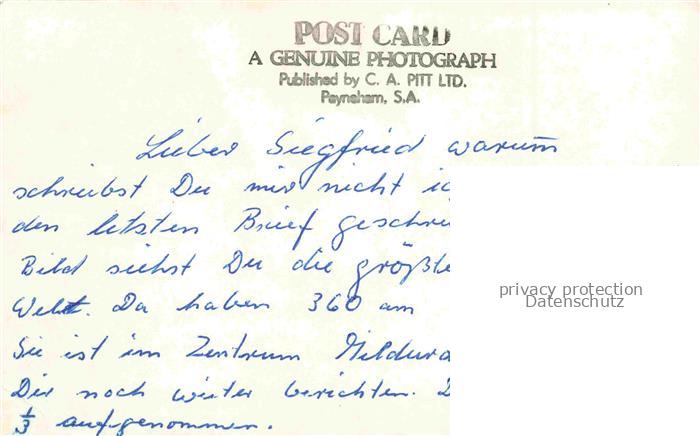 POST CARD
A GENUINE PHOTOGRAPH
Published by C. A. PITT LTD.
Payneham, S.A.
Lieber Siegfried warum
schreibst Du mir nicht ic
den letsten Brief geschrie
Bild siehst Du die größte
Welt. Da haben 360 am
Sie ist im Zentrum Mildura
Dir noch weiter berichten. D
1/3 aufgenommen.
privacy protection
Datenschutz